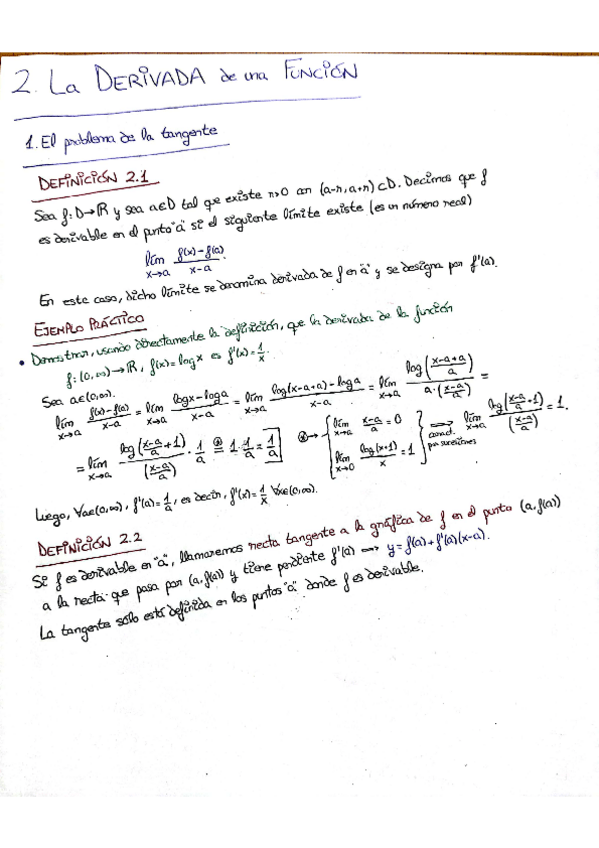 2. La DERIVADA de una FUNCIÓN
1. El problema de la tangente
DEFINICIÓN 2.1
Sea f: D→ℝ y sea a∈D tal que existe r>0 con (a-r, a+r) ⊂ D. Decimos que f
es derivable en el punto "a" si el siguiente límite existe (es un número real)
lím_{x→a} (f(x)-f(a))/(x-a).
En este caso, dicho límite se denomina derivada de f en "a" y se designa por f'(a).
EJEMPLO PRÁCTICO
• Demostrar, usando directamente la definición, que la derivada de la función
f: (0,∞)→ℝ, f(x)=log x es f'(x)=1/x.
Sea a∈(0,∞).
lím_{x→a} (f(x)-f(a))/(x-a) = lím_{x→a} (log x - log a)/(x-a) = lím_{x→a} (log(x-a+a) - log a)/(x-a) = lím_{x→a} log((x-a+a)/a)/(a·((x-a)/a)) =
= lím_{x→a} log((x-a)/a + 1)/((x-a)/a) · 1/a ⊛= 1·1/a = 1/a] ⊛→ { lím_{x→a} (x-a)/a = 0 lím_{x→0} log(x+1)/x = 1 } ⟹ caract. por sucesiones lím_{x→a} log((x-a)/a + 1)/((x-a)/a) = 1.
Luego, ∀a∈(0,∞), f'(a)=1/a, es decir, f'(x)=1/x ∀x∈(0,∞).
DEFINICIÓN 2.2
Si f es derivable en "a", llamaremos recta tangente a la gráfica de f en el punto (a, f(a))
a la recta que pasa por (a, f(a)) y tiene pendiente f'(a) ⟹ y=f(a)+f'(a)(x-a).
La tangente sólo está definida en los puntos "a" donde f es derivable.